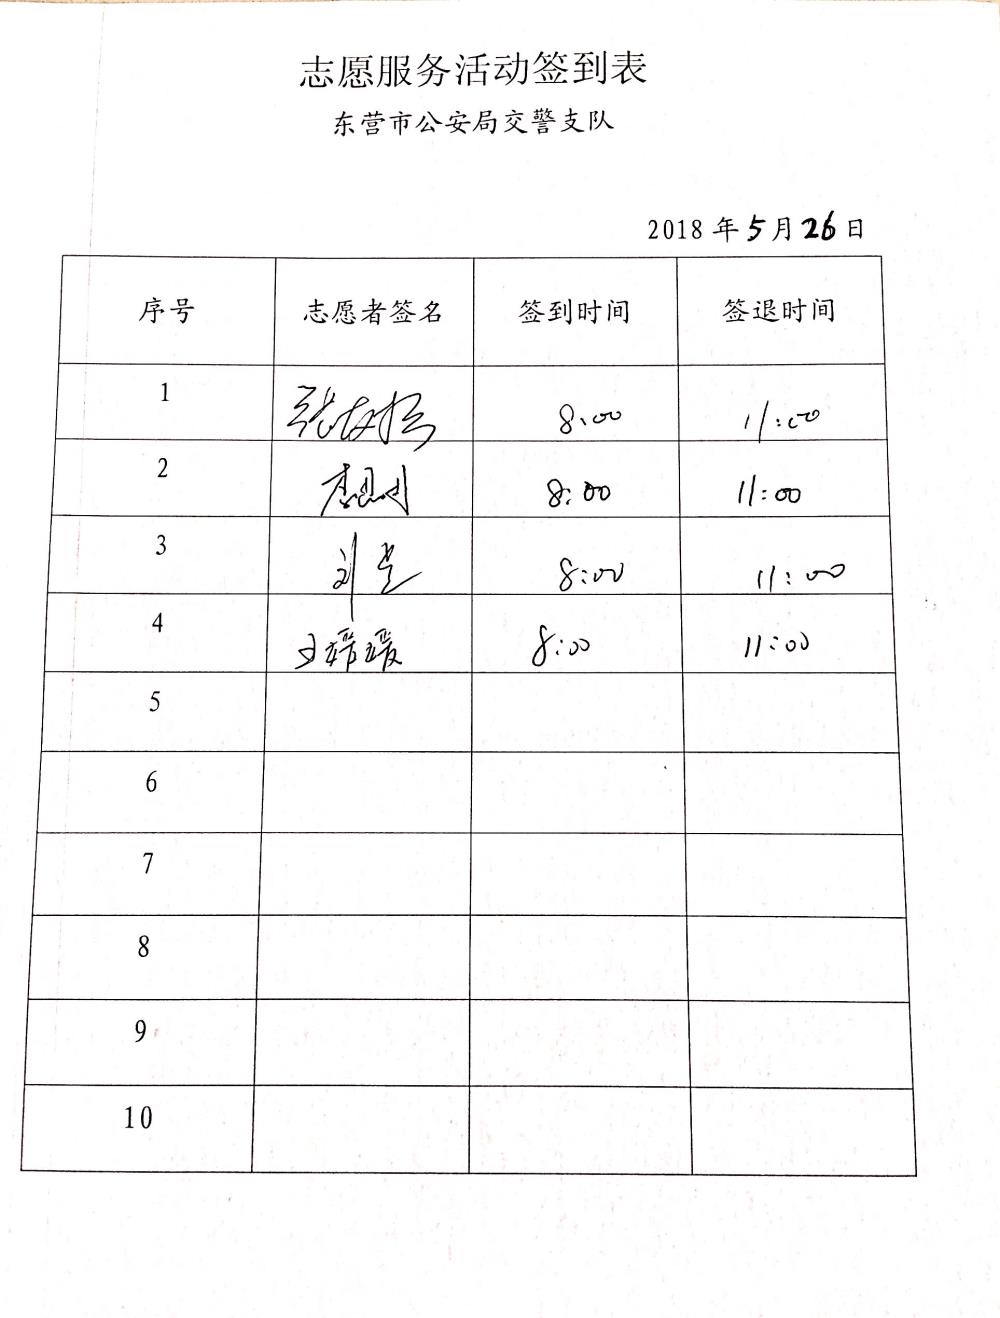 志愿服务活动签到表
东营市公安局交警支队
2018 年 5 月 26 日
序号 志愿者签名 签到时间 签退时间
1 8:00 11:00
2 8:00 11:00
3 8:00 11:00
4 8:00 11:00
5
6
7
8
9
10